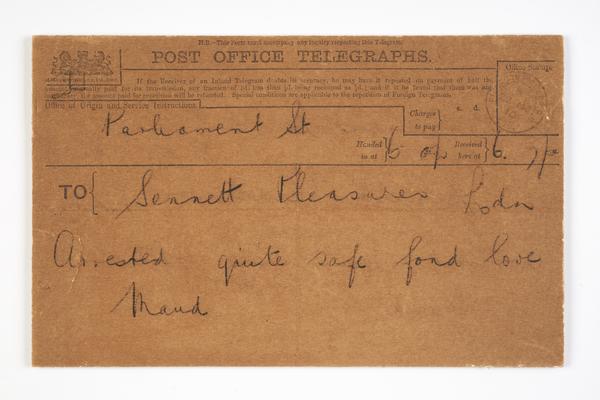 N.B.—This Form must accompany any inquiry respecting this Telegram.
POST OFFICE TELEGRAPHS.
If the Receiver of an Inland Telegram doubts its accuracy, he may have it repeated on payment of half the
amount originally paid for its transmission, any fraction of 1d. less than ½d. being reckoned as ½d.; and if it be found that there was any
inaccuracy, the amount paid for repetition will be refunded. Special conditions are applicable to the repetition of Foreign Telegrams.
Office of Origin and Service Instructions.
Office Stamp.
Parliament St
Charges to pay
s. d.
Handed in at 6
Received here at 6.
TO Sennett Pleasures Lodn
Arrested quite safe fond love
Maud